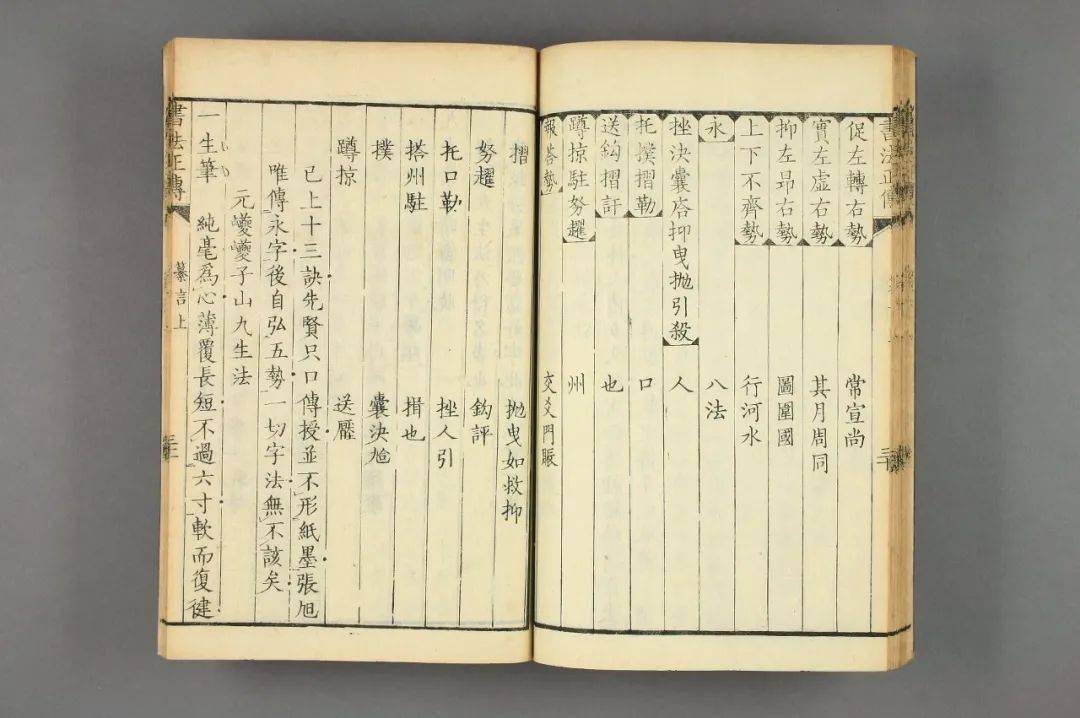 書法正傳
促左轉右勢 常宣尚
實左虛右勢 其月周同
抑左昂右勢 圖圍國
上下不齊勢 行河水
永 八法
挫決囊𠯗抑曳拋引殺 人
托撲摺勒 口
送鈎摺訐 也
蹲掠駐努趯 州
報荅勢 交爻門賑
摺 拋曳如救抑
努趯 鈎評
托口勒 挫人引
搭州駐 揖也
撲 囊決尬
蹲掠 送𢊍
已上十三訣先賢只口傳授並不形紙墨張旭
唯傳永字後自弘五勢一切字法無不該矣
元巎巎子山九生法
一生筆 純毫為心薄覆長短不過六寸軟而復健
書法正傳 纂言上 三